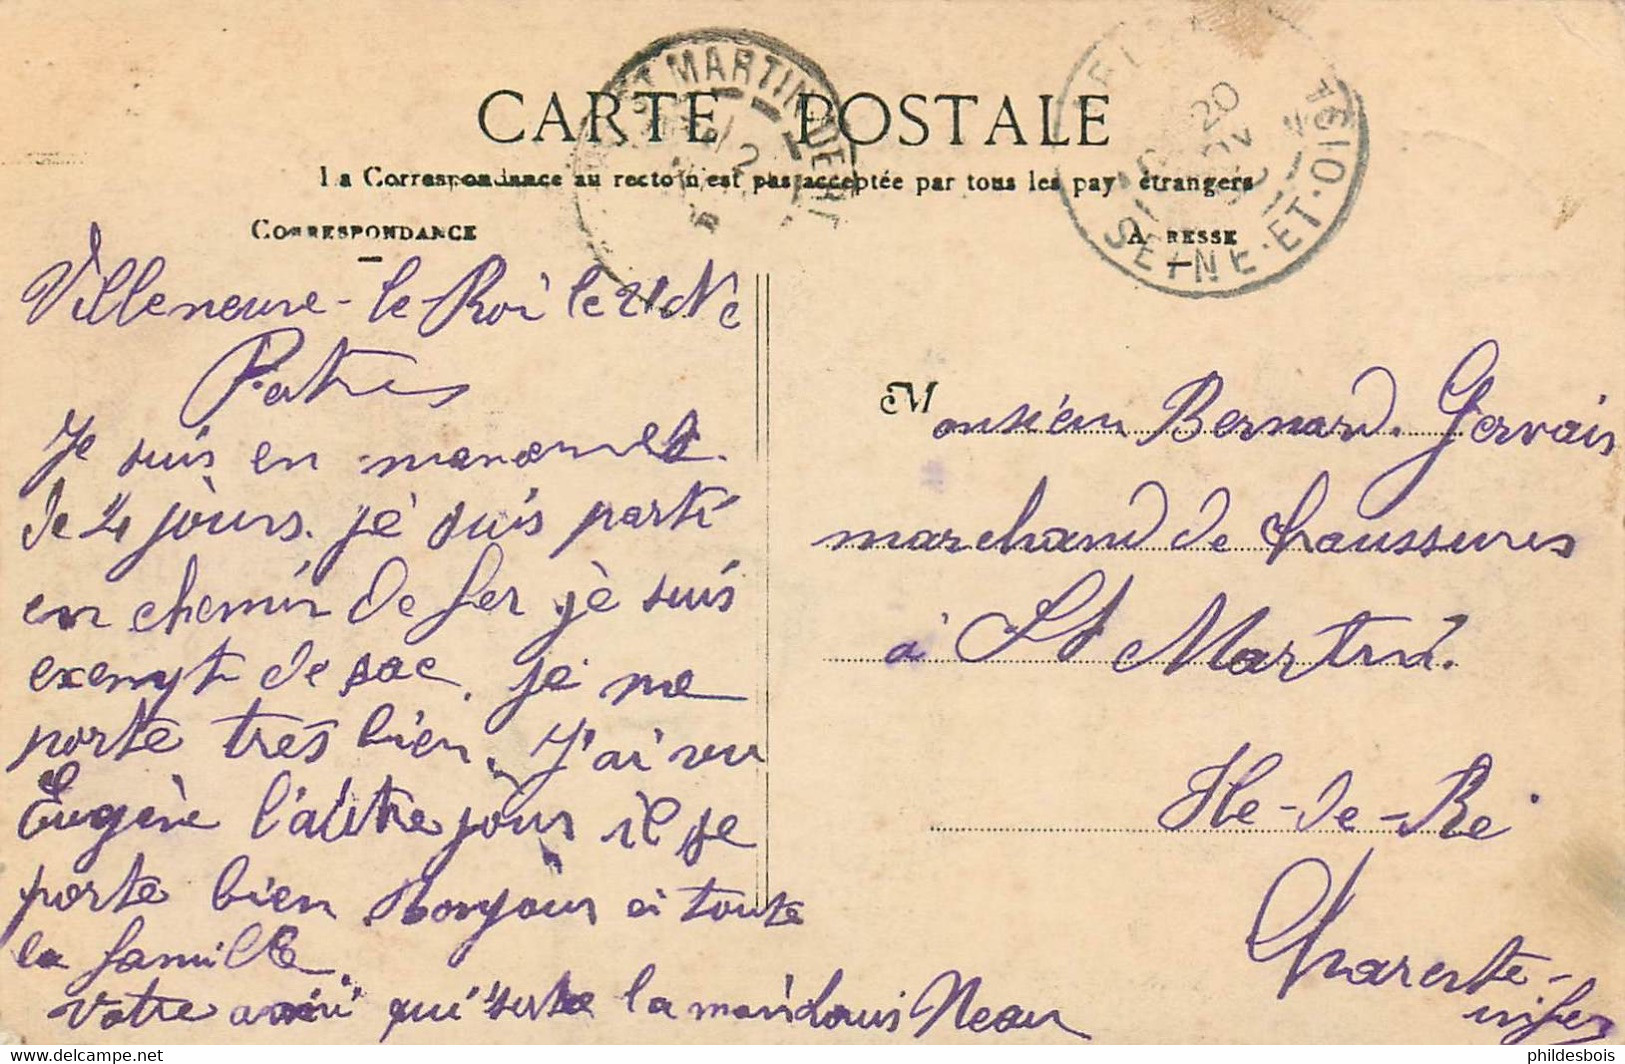 CARTE POSTALE
La Correspondance au recto n'est pas acceptée par tous les pays étrangers
CORRESPONDANCE
A RESSE
ST MARTIN DE RÉ
20
SEINE-ET-OISE
Villeneuve-le Roi le 21 Ne
Je suis en manoeuvres
de 4 jours. je suis parti
en chemin de fer je suis
exempt de sac. je me
porte très bien. J'ai vu
Eugène l'autre jour il se
porte bien Bonjour à toute
la famille.
Votre ami qui serre la main Louis Neau
Monsieur Bernard. Gervais
marchand de Chaussures
à St Martin.
Ile-de-Ré
Charente-
infer
phildesbois